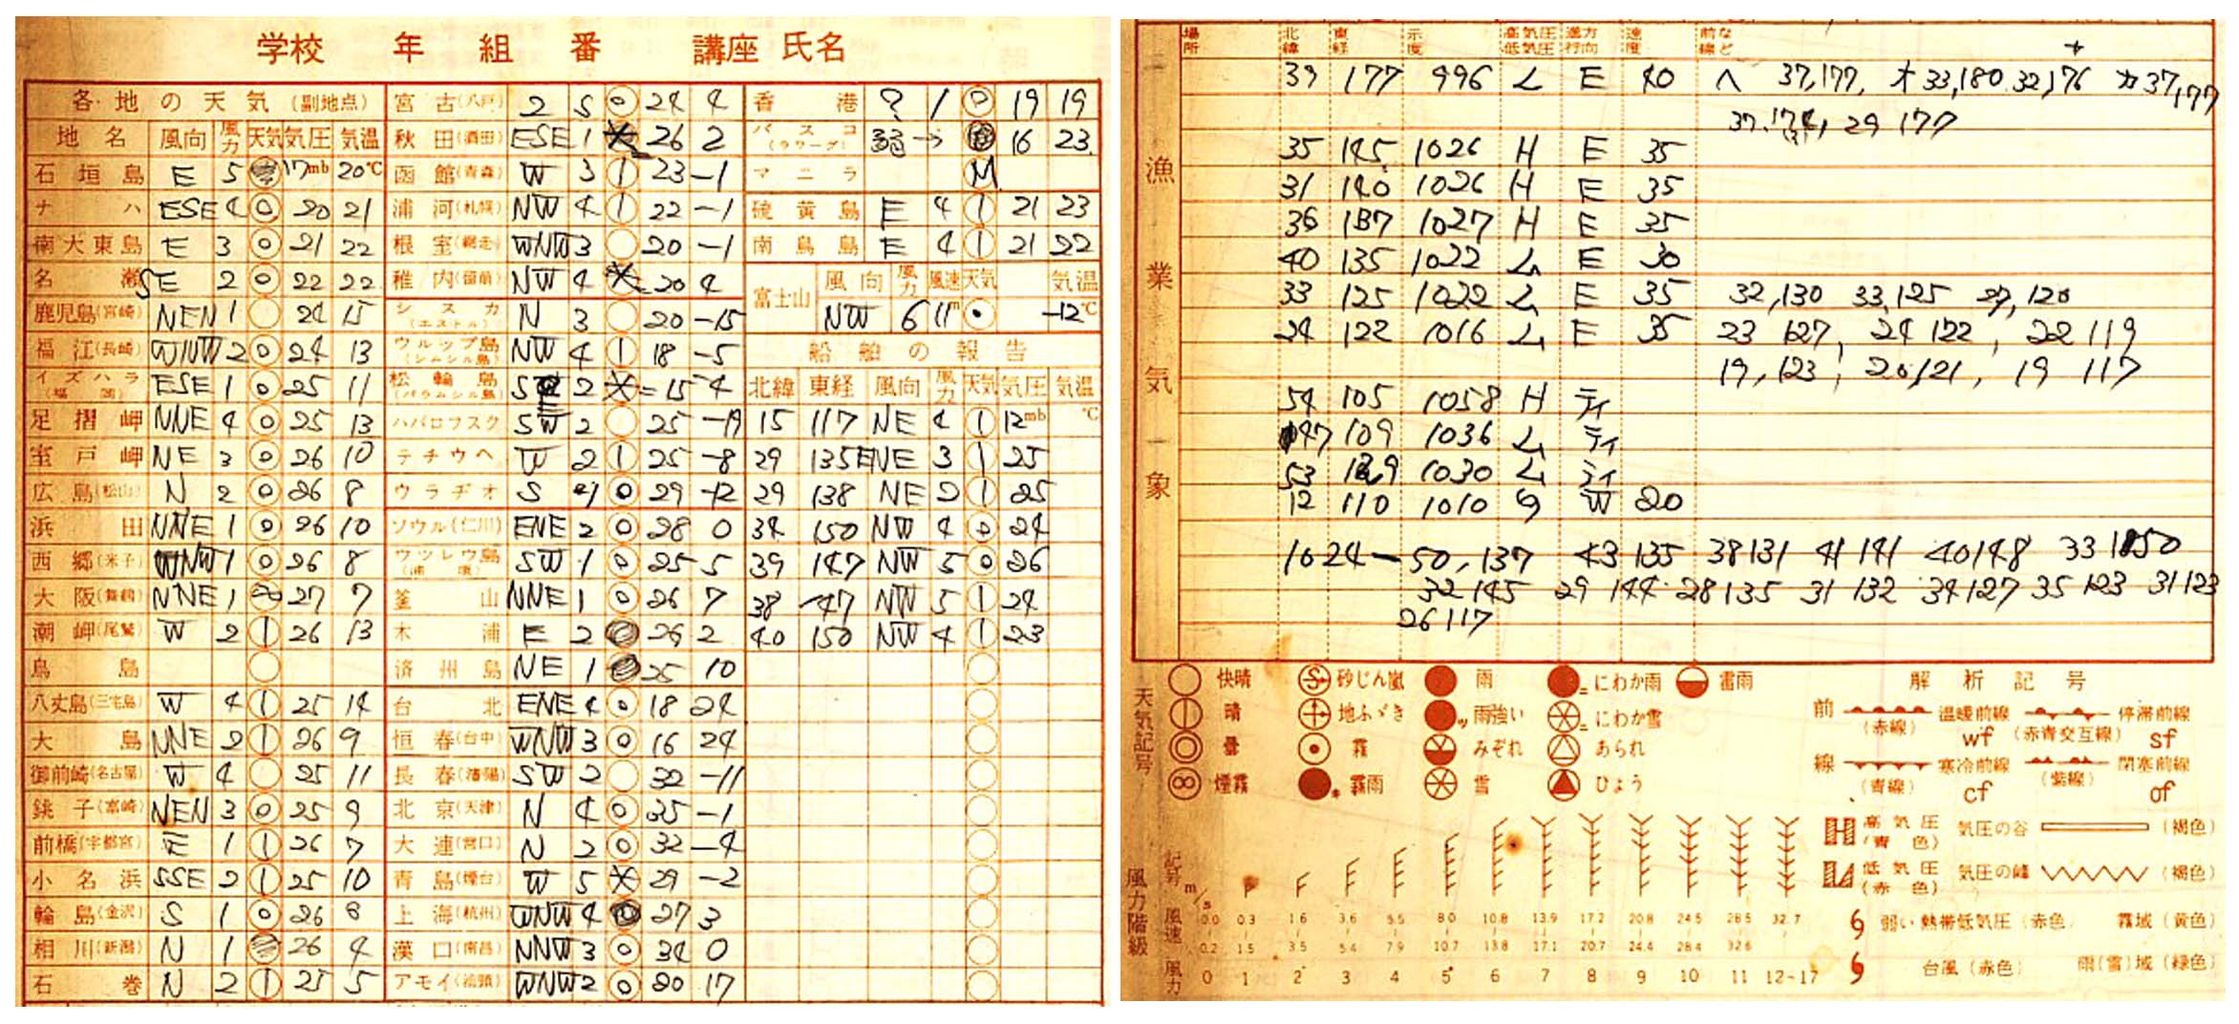 学校 年 組 番 講座 氏名
各地の天気 (副地点)
地名 風向 風力 天気 気圧 気温
石垣島 E 5 17mb 20℃
ナハ ESE 4 20 21
南大東島 E 3 21 22
名瀬 SE 2 22 22
鹿児島(宮崎) NEN 1 24 15
福江(長崎) WNW 2 24 13
イズハラ ESE 1 25 11
足摺岬 NNE 4 25 13
室戸岬 NE 3 26 10
広島(松山) N 2 26 8
浜田 NNE 1 26 10
西郷(米子) WNW 1 26 8
大阪(舞鶴) NNE 1 27 7
潮岬(尾鷲) W 2 26 13
鳥島
八丈島(三宅島) W 4 25 14
大島 NNE 2 26 9
御前崎(名古屋) W 4 25 11
銚子 NEN 3 25 9
前橋(宇都宮) E 1 26 7
小名浜 SSE 2 25 10
輪島(金沢) S 1 26 8
相川(新潟) N 1 26 4
石巻 N 2 25 5
宮古(八戸) 2 5 24 4
秋田(酒田) ESE 1 26 2
函館(青森) W 3 23 -1
浦河(札幌) NW 4 22 -1
根室(網走) WNW 3 20 -1
稚内(留萌) NW 4 20 4
シスカ(エストル) N 3 20 -15
ウルップ島(シムシル島) NW 4 18 -5
松輪島(パラムシル島) 2 15 4
ハバロフスク SW 2 25 -19
テチウヘ W 2 25 -8
ウラヂオ S 29 -12
ソウル(仁川) ENE 2 28 0
ウツレウ島 SW 1 25 5
釜山 NNE 1 26 7
木浦 E 2 26 2
済州島 NE 1 25 10
台北 ENE 4 18 24
恒春(台中) WNW 3 16 24
長春(瀋陽) SW 2 32 -11
北京(天津) N 4 35 -1
大連(営口) N 2 32 -4
青島(煙台) W 5 29 -2
上海(杭州) WNW 4 27 3
漢口(南昌) NNW 3 34 0
アモイ(汕頭) WNW 2 20 17
香港 ? 1 19 19
バスコ(ラワーグ) → 16 23
マニラ M
硫黄島 E 4 21 23
南鳥島 E 4 21 22
風向 風力 風速 天気 気温
富士山 NW 6 11m -12℃
船舶の報告
北緯 東経 風向 風力 天気 気圧 気温
15 117 NE 4 12mb ℃
29 135 ENE 3 25
29 138 NE 2 25
34 150 NW 4 24
39 147 NW 5 26
38 147 NW 5 24
40 150 NW 4 23
漁業気象
場所 北緯 東経 示度 高気圧 低気圧 進行方向 速度 前線など
39 177 996 L E 40 ヘ 37,177, オ33,180 32,176 カ37,177
37,174, 29 177
35 145 1026 H E 35
31 140 1026 H E 35
36 137 1027 H E 35
40 135 1022 L E 30
33 125 1022 L E 35 32,130 33,125 27,120
24 122 1016 L E 35 23 127, 24 122, 22 119
19,123, 20,121, 19 117
54 105 1058 H テイ
47 109 1036 L テイ
53 129 1030 L テイ
12 110 1010 W 20
1024-50,137 43 135 38 131 41 141 40 148 33 150
32 145 29 144 28 135 31 132 34 127 35 123 31 123
26 117
天気記号
快晴 砂じん嵐 雨 にわか雨 雷雨
晴 地ふゞき 雨強い にわか雪
曇 霧 みぞれ あられ
煙霧 霧雨 雪 ひょう
解析記号
前線
(赤線) 温暖前線 wf (赤青交互線) 停滞前線 sf
(青線) 寒冷前線 cf (紫線) 閉塞前線 of
H 高気圧(青色) 気圧の谷 (褐色)
L 低気圧(赤色) 気圧の峰 (褐色)
弱い熱帯低気圧(赤色) 霧域(黄色)
台風(赤色) 雨(雪)域(緑色)
風力階級
記号
m/s
風速 0.0 0.3 1.6 3.6 5.5 8.0 10.8 13.9 17.2 20.8 24.5 28.5 32.7
0.2 1.5 3.5 5.4 7.9 10.7 13.8 17.1 20.7 24.4 28.4 32.6
風力 0 1 2 3 4 5 6 7 8 9 10 11 12~17